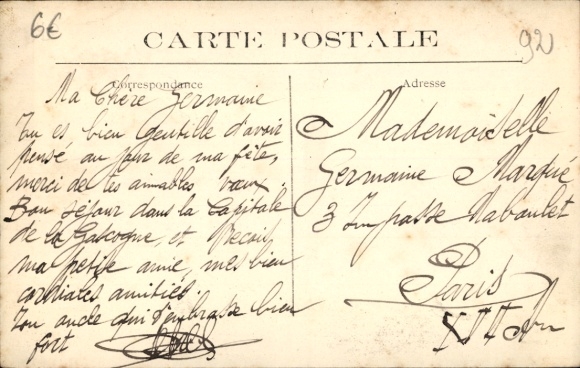 6€
92
CARTE POSTALE
Correspondance
Ma Chère Germaine
Tu es bien gentille d'avoir
pensé au jour de ma fête,
merci de tes aimables vœux.
Bon séjour dans la Capitale
de la Gascogne, et Reçois,
ma petite amie, mes bien
cordiales amitiés.
Ton oncle qui t'embrasse bien
fort
Adresse
Mademoiselle
Germaine Marqué
3 Impasse Naboulet
Paris
XVII Arr